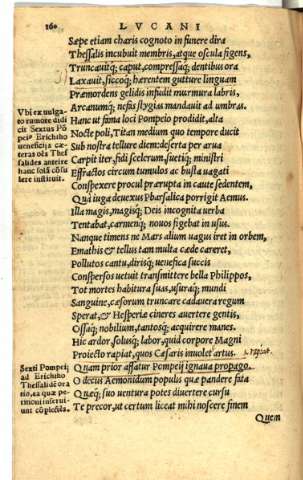 160 LVCANI
Sæpe etiam charis cognoto in funere dira
Thessalis incubuit membris, atque oscula figens,
Truncauitq; caput, compressaq; dentibus ora
Laxauit, siccoq; hærentem gutture linguam
Præmordens gelidis infudit murmura labris,
Arcanumq; nefas stygias mandauit ad umbras.
Vbi ex uulga-
to rumore didi
cit Sextus Põ
peiꝰ Erichtho
ueneficijs cæ-
teras oẽs Thes
salides anteire
hanc solã cõsu
lere instituit.
Hanc ut fama loci Pompeio prodidit, alta
Nocte poli, Titan medium quo tempore ducit
Sub nostra tellure diem: deserta per arua
Carpit iter, fidi scelerum, suetiq; ministri
Effractos circum tumulos ac busta uagati
Conspexere procul prærupta in caute sedentem,
Qua iuga deuexus Pharsalica porrigit Aemus.
Illa magis, magisq; Deis incognita uerba
Tentabat, carmenq; nouos figebat in usus.
Nanque timens ne Mars alium uagus iret in orbem,
Emathis & tellus tam multa cæde careret,
Pollutos cantu, dirisq; uenefica succis
Conspersos uetuit transmittere bella Philippos,
Tot mortes habitura suas, usuraq; mundi
Sanguine, cæsorum truncare cadauera regum
Sperat, & Hesperiæ cineres auertere gentis,
Ossaq; nobilium, tantosq; acquirere manes.
Hic ardor, solusq; labor, quid corpore Magni
Proiecto rapiat, quos Cæsaris inuolet artus.
Sexti Pompeij
ad Erichtho
Thessali dẽ ora
tio, ea quæ pe-
timoni inserui-
unt cõplexa.
Quam prior affatur Pompeij ignaua propago.
O decus Aemonidum populis quæ pandere fata
Quæq; suo uentura potes diuertere cursu
Te precor, ut certum liceat mihi noscere finem
Quem